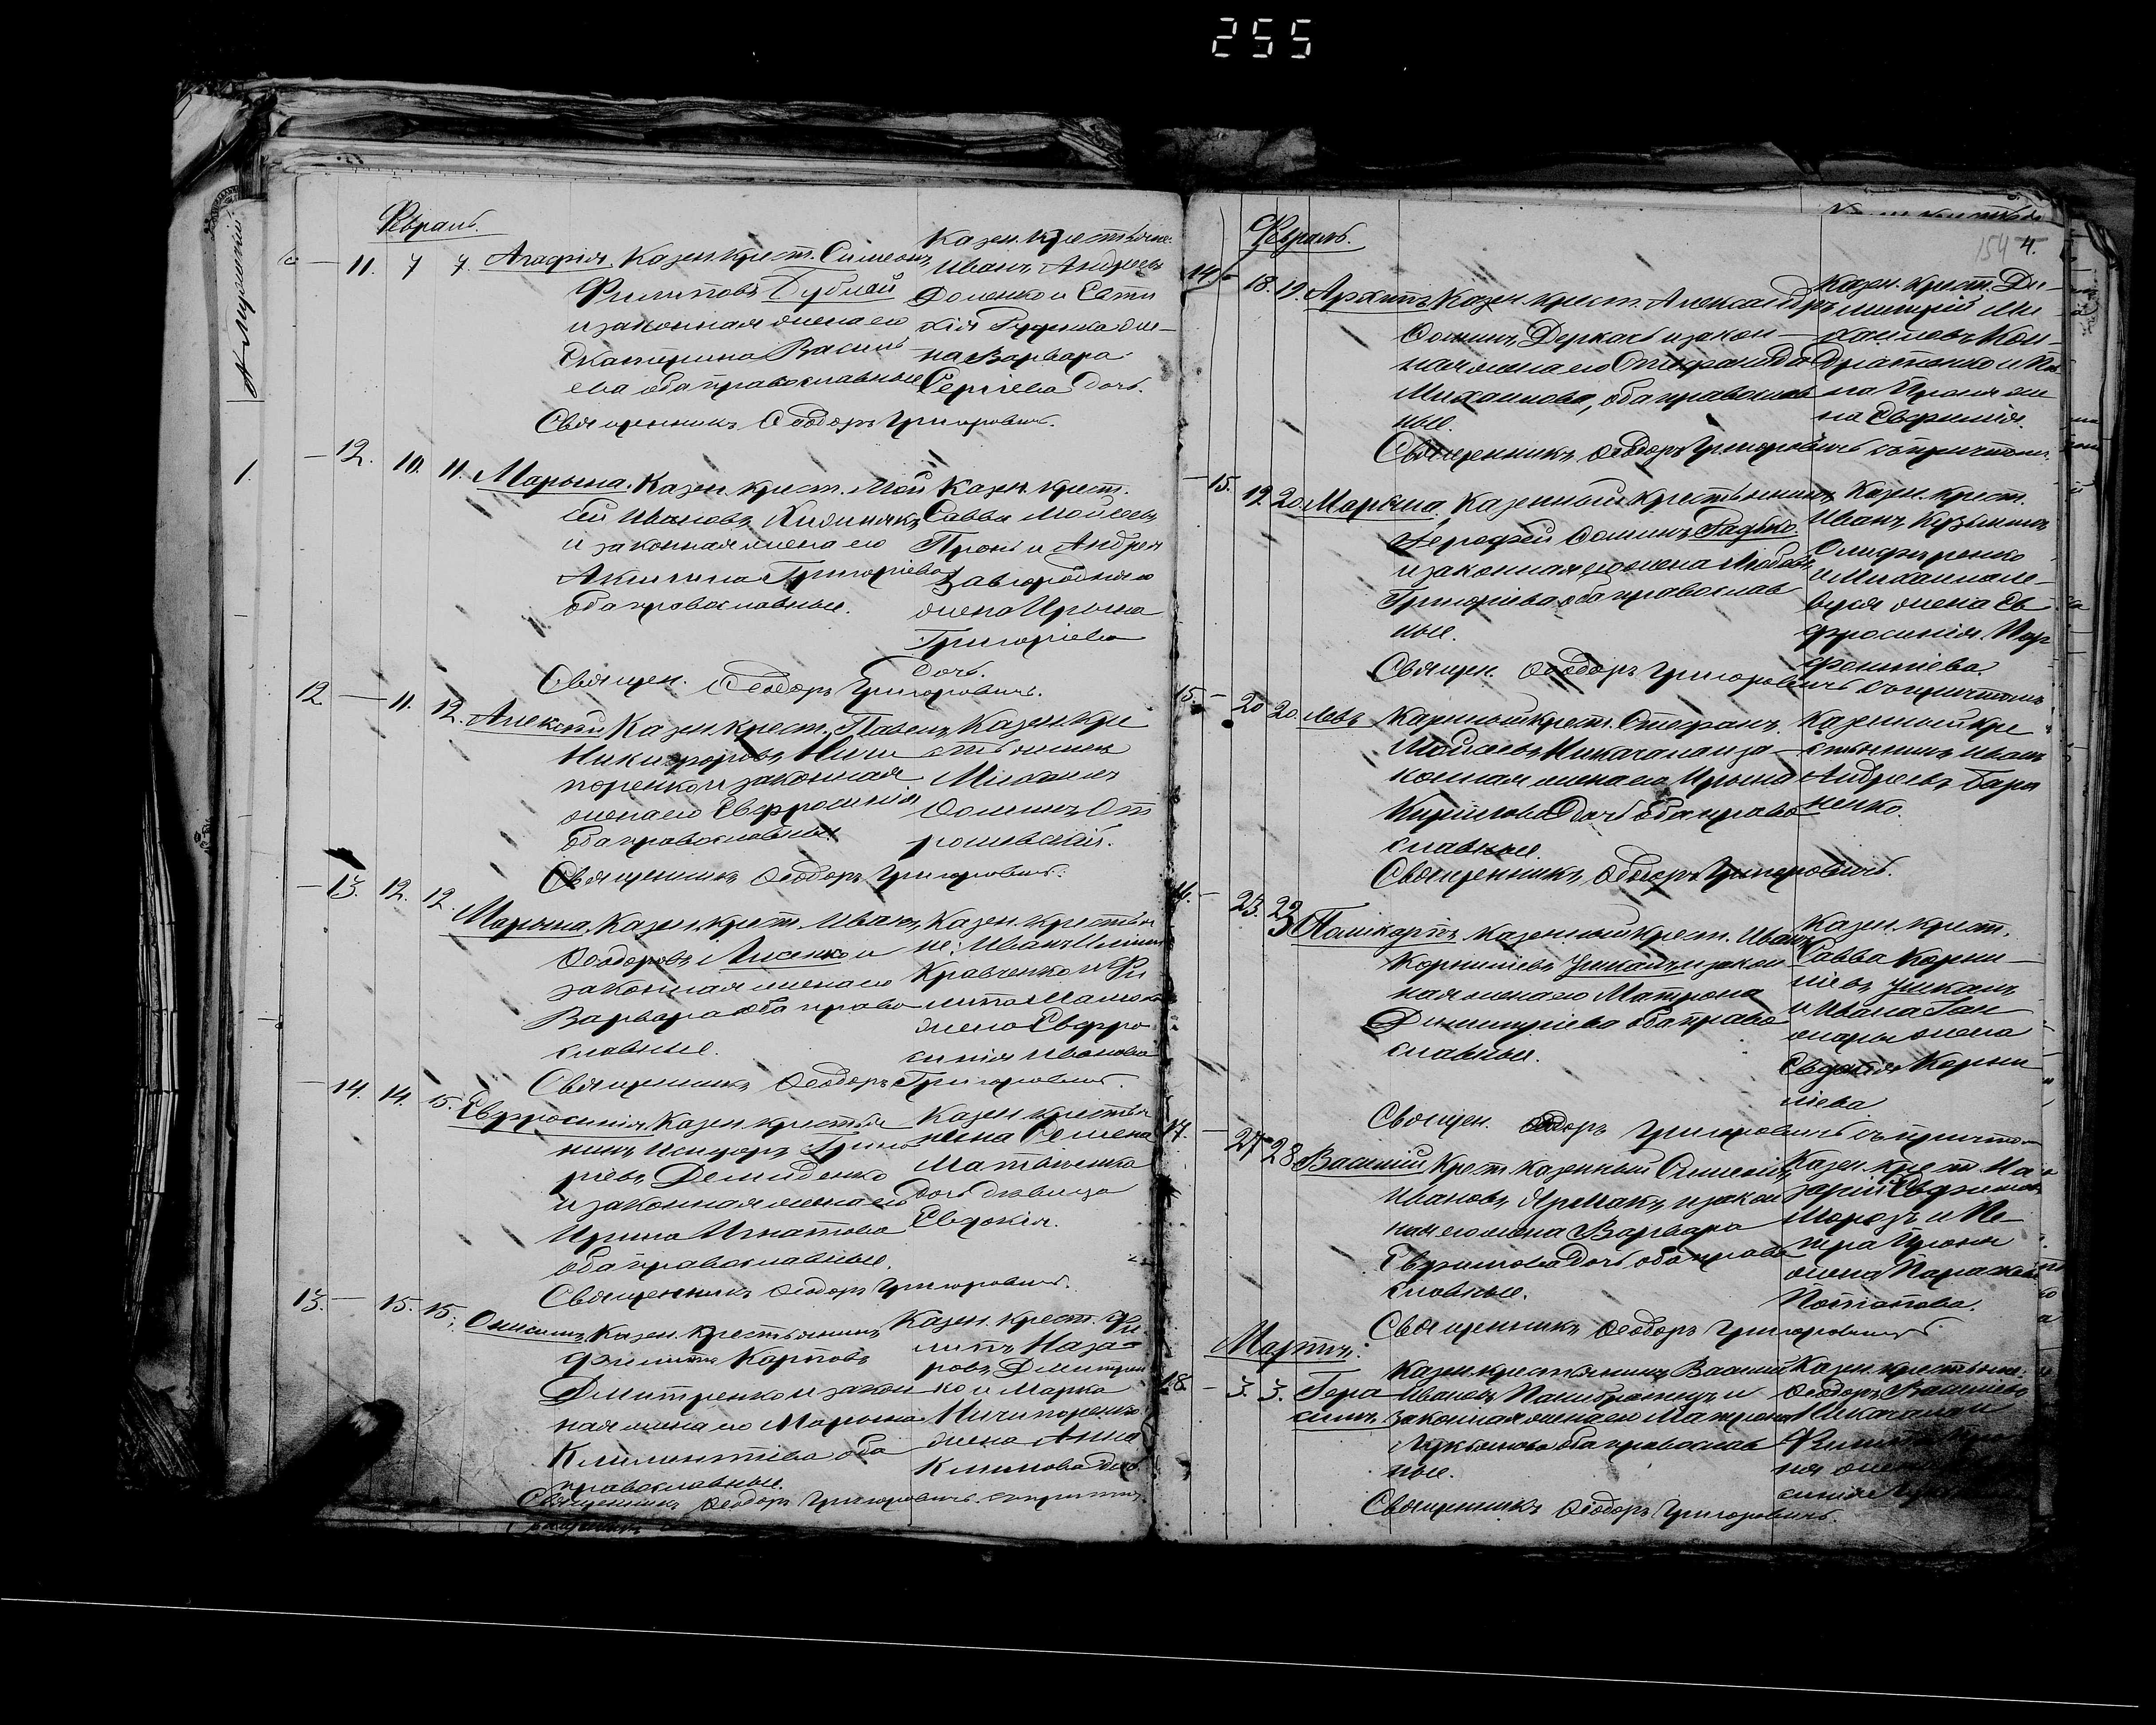 255
Февраль.
11. 7 7. Агафія Казен. крест. Симеонъ
Филиповъ Бублей
и законная жена его
Екатерина Василь
ева оба православные
Казен. крестьяне
Иванъ Андреевъ
Доленко и Евти
хія Руденка же-
на Варвара
Сергіева дочь.
Священникъ Ѳеодоръ Григоровичъ.
12. 10. 11. Марьяна. Казен. крест. Мой
сей Ивановъ
и законная жена его
Акилина Григоріева
оба православные.
Казен. крест.
Савва Мойсеевъ
и Андрея
Завгородняго
жена Ирина
Григоріева
дочь.
Священ. Ѳеодоръ Григоровичъ.
12 11. 12. Алексій Казен. крест. Павелъ
Никифоровъ Ничи
поренко и законная
жена его Евфросинія
оба православные
Казен. кре
стьянинъ
Михаилъ
Ѳоминъ
Священникъ Ѳеодоръ Григоровичъ.
13. 12. 12. Марьяна. Казен. крест. Иванъ
Ѳеодоровъ Лисенко и
законная жена его
Варвара оба право
славные.
Казен. крестья
не: Иванъ
Кравченко и Фи
липа
жена Евфро
синія Иванова
Священникъ Ѳеодоръ Григоровичъ.
14. 14. 15. Евфросинія Казен. крестья
нинъ Исидоръ Григо
ріевъ Демиденко
и законная жена его
Ирина Игнатова
оба православные.
Казен. крестья
нина Семена
Матвіенка
дочь дѣвица
Евдокія.
Священникъ Ѳеодоръ Григоровичъ.
13. 15. 15. Онисимъ Казен. крестьянинъ
Филиппъ Карповъ
Дмитренко и закон
ная жена его Марьяна
Климентіева оба
православные.
Казен. крест. Фи
липъ Наза-
ровъ Дмитрен
ко и Марка
Ничипоренко
жена Анна
Климова дочь
Священникъ Ѳеодоръ Григоровичъ съ причтомъ
Февраль.
154 4.
14 18. 19. Архипъ Казен. крест. Александръ
Ѳоминъ Деркачъ и закон
ная жена его Стефанида
Михаилова, оба православ
ные.
Казен. крест. Ди-
митрій Ми
хаиловъ Кон-
дратенко и
же
на Евфимія.
Священникъ Ѳеодоръ Григоровичъ съ причтомъ.
15. 19. 20. Марьяна. Казенный крестьянинъ
Іерофей Ѳоминъ Гадько
и законная его жена Любовь
Григоріева оба православ
ные.
Казен. крест.
Иванъ Кузьминъ
Олифиренко
жена Ев
фросинія Пар
феніева.
Священ. Ѳеодоръ Григоровичъ съ причтомъ
15. 20 20. Левъ Казенный крест. Стефанъ
Мойсеевъ и за-
конная жена его Ирина
Кирилова дочь оба право
славные.
Казенный кре
стьянинъ Иванъ
Андреевъ Бара
ненко.
Священникъ Ѳеодоръ Григоровичъ.
16. 23. 23 Поликарпъ Казенный крест. Иванъ
Корниліевъ и закон
ная жена его Матрона
Димитріева оба право
славные.
Казен. крест.
Савва Корни-
ліевъ
и Ивана Ган
жары жена
Евдокія Корни
ліева
Священ. Ѳеодоръ Григоровичъ съ причтомъ
17. 27 28 Василій Крест. казенный Симеонъ
Ивановъ Ярмакъ и закон
ная его жена Варвара
Евфимова дочь оба право
славные.
Казен. крест. На
зарій Евфимовъ
Морозъ и Пе
тра
жена Параскева
Потапова.
Священникъ Ѳеодоръ Григоровичъ
Мартъ.
18. 3. 3. Гера
симъ
Казен. крестьянинъ Василій
Ивановъ и
законная жена его Матрона
Лукьянова оба православ
ные.
Казен. крестьяне
Ѳеодоръ Василіевъ
Священникъ Ѳеодоръ Григоровичъ.